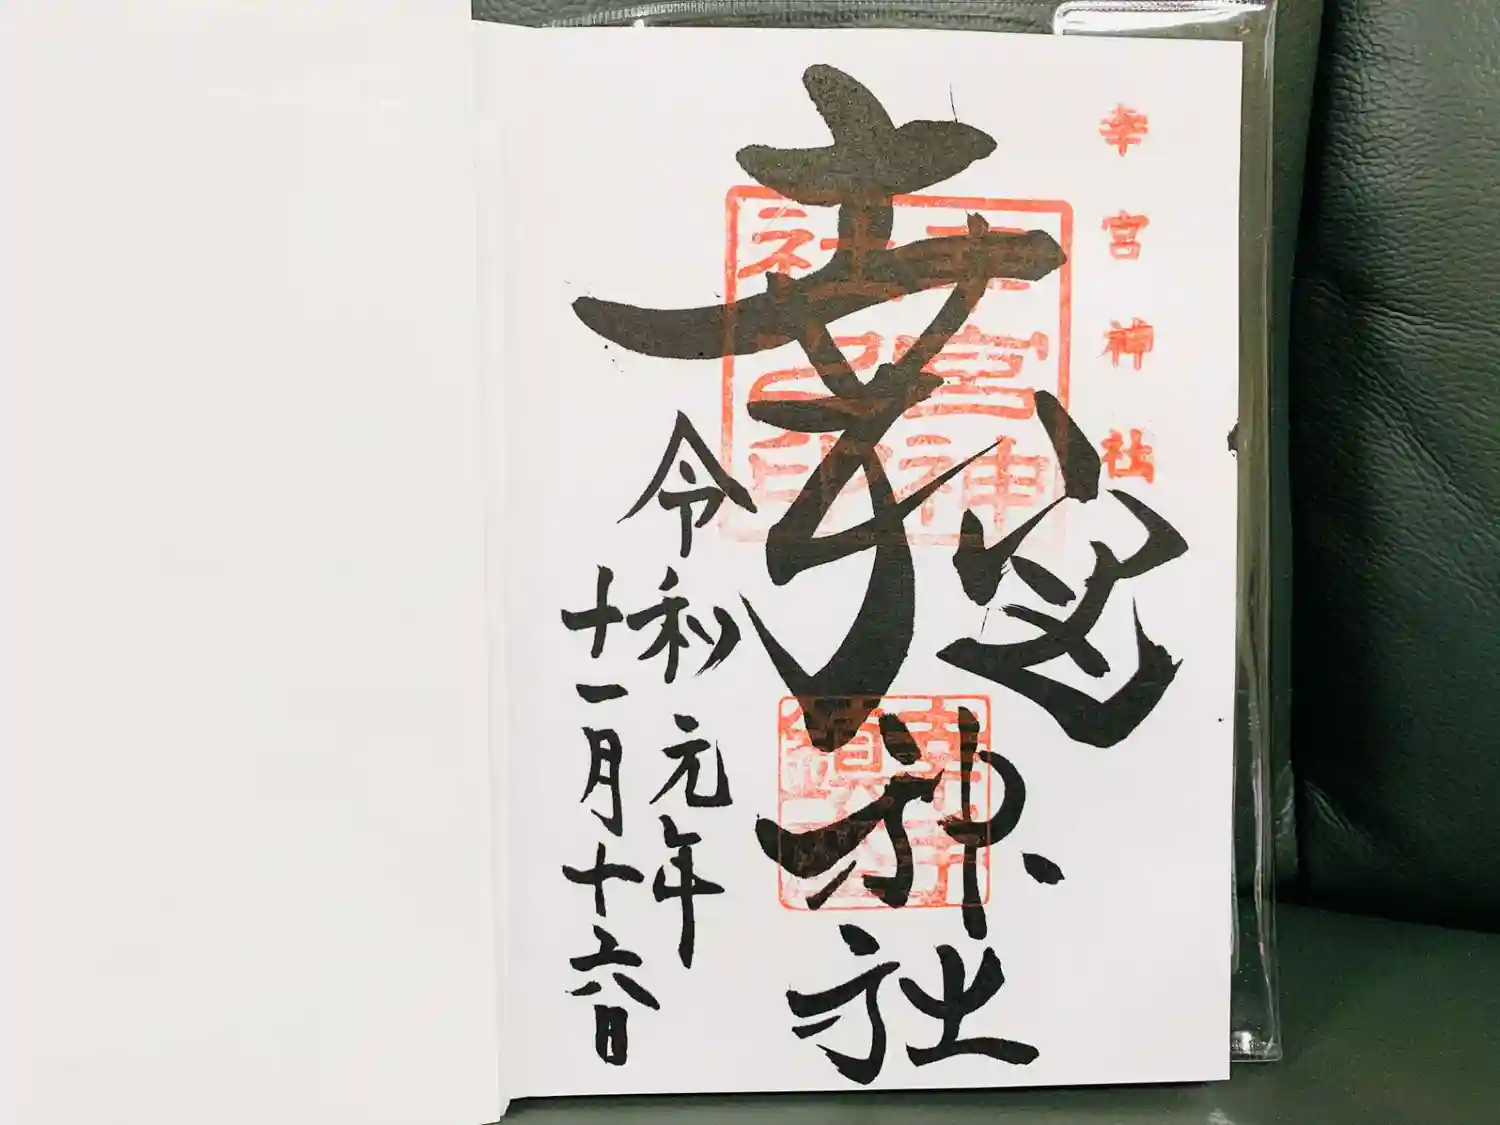 幸宮神社
幸宮神社
幸宮神
社之印
令和元年
十一月十六日